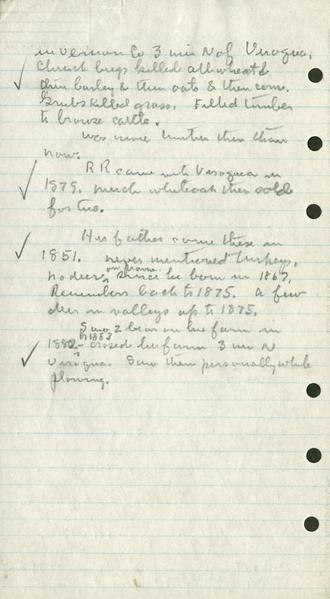 in Vernon Co 3 mi N of Viroqua.
Chinch bugs killed all wheat &
then barley & then oats & then corn.
Grubs killed grass. Felled timber
to browse cattle.
Was more timber then than
now.
RR came into Viroqua in
1879. much white oak then sold
for ties.
His father came there in
1851. never mentioned turkeys,
no deer on prairie since he born in 1867,
Remembers back to 1875. A few
deer in valleys up to 1875.
Saw 2 bear on the farm in
1882- or 1883 crossed his farm 3 mi N
Viroqua. Saw them personally while
plowing.